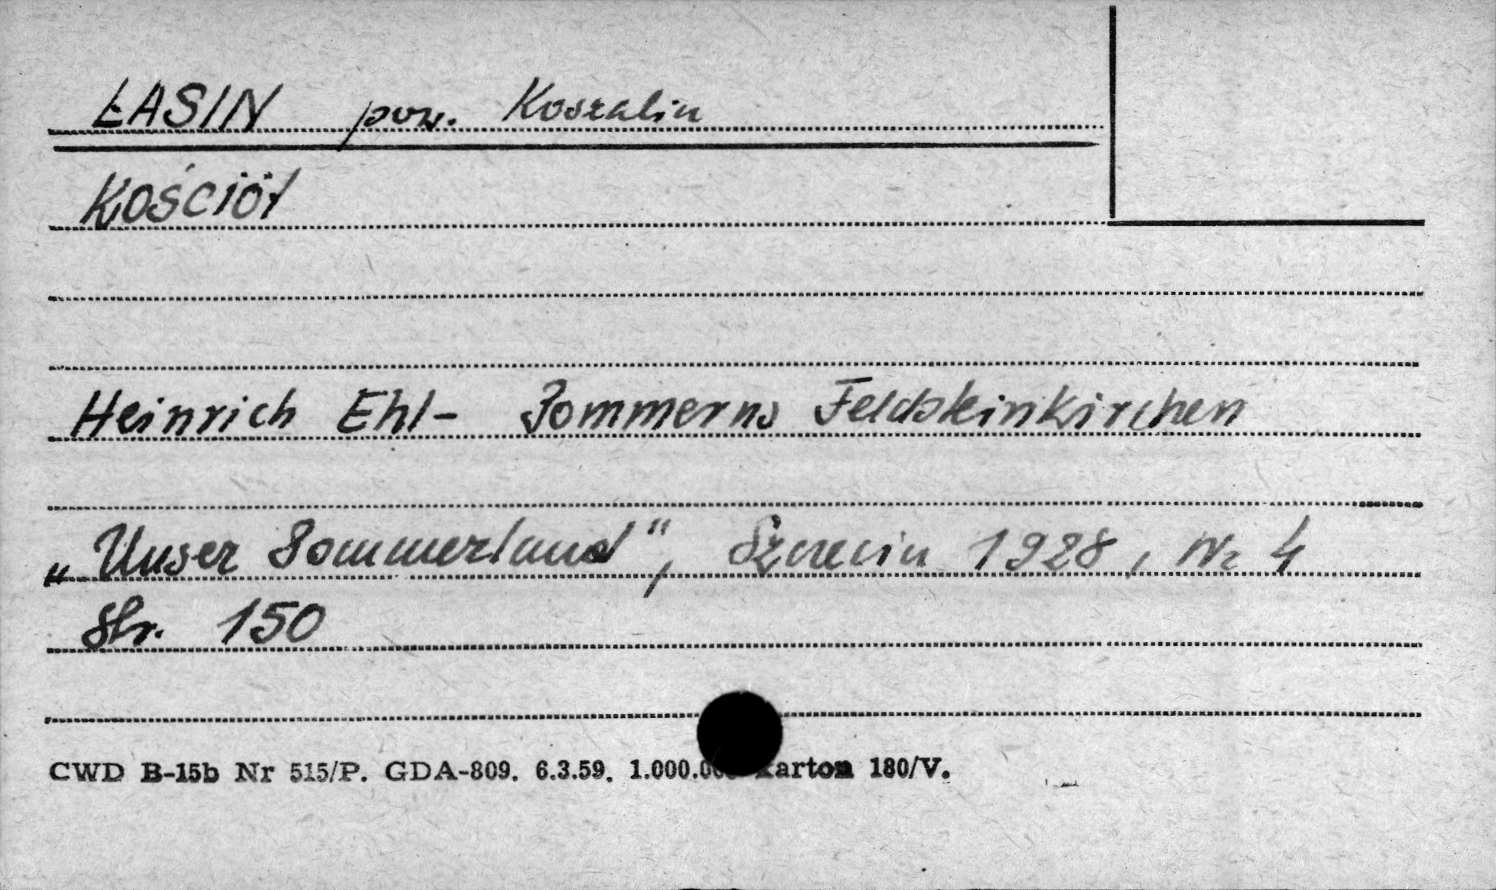 ŁASIN pow. Koszalin
KOŚCIÓŁ
Heinrich Ehl- Pommerns Feldsteinkirchen
„Unser Pommerland", Szczecin 1928, Nr 4
Str. 150
CWD B-15b Nr 515/P. GDA-809. 6.3.59. karton 180/V.